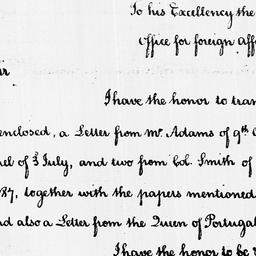 To his Excellency the
Office for foreign aff
ir
I have the honor to tran
enclosed, a Letter from Mr. Adams of 9th
el of 3 July, and two from Col. Smith of
87, together with the papers mentioned
nd also a Letter from the Queen of Portugal
I have the honor to be